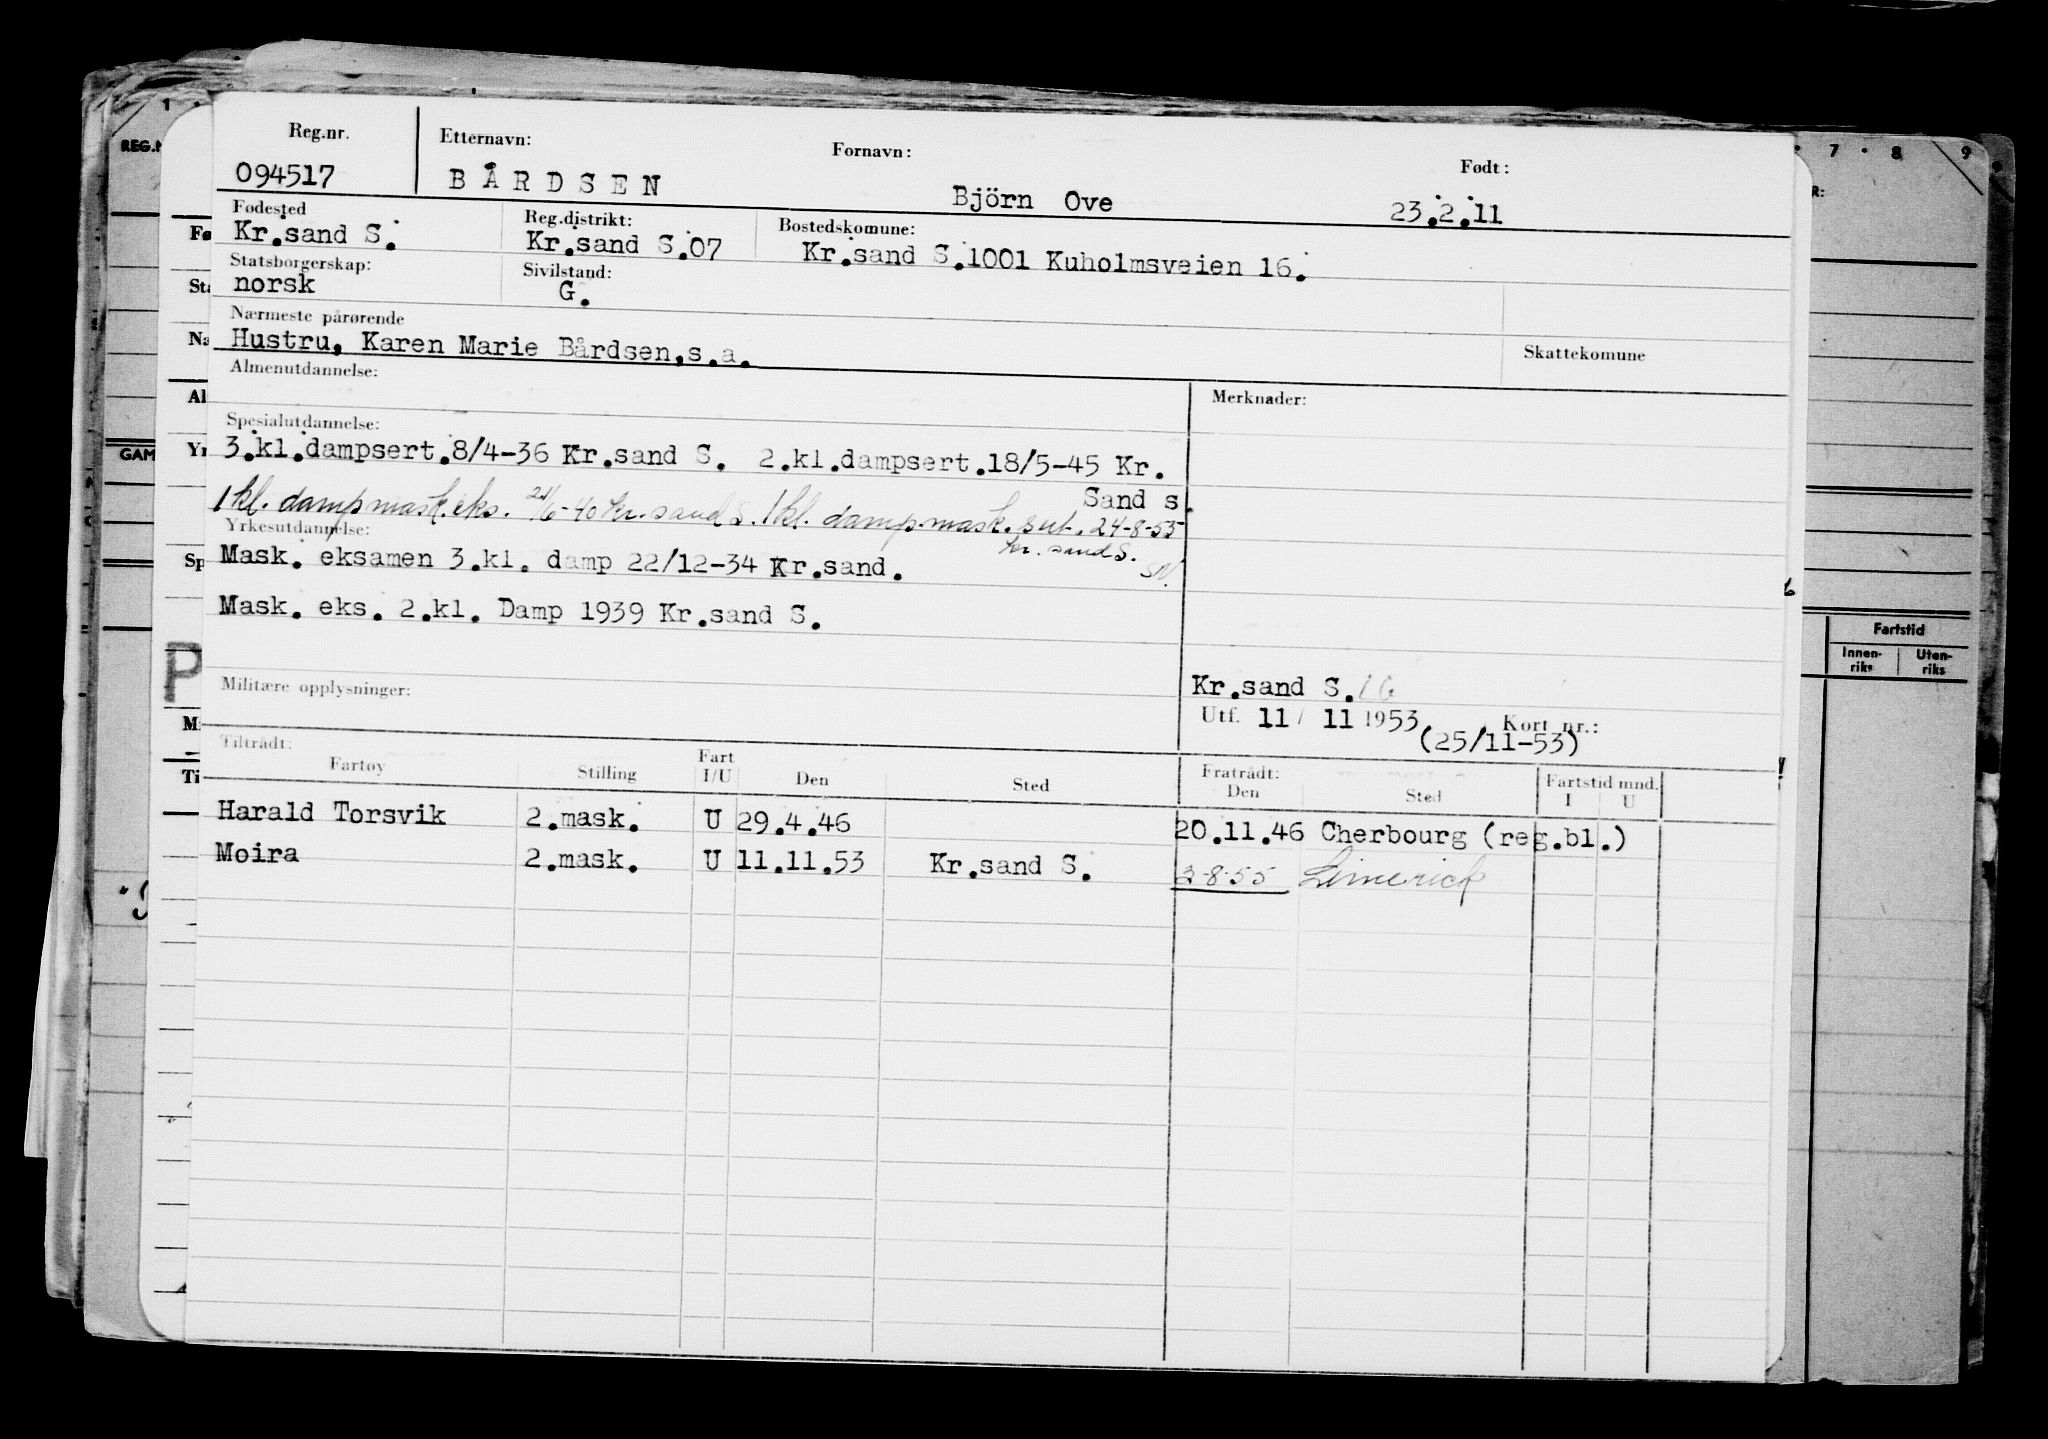 Reg.nr. Etternavn: Fornavn: Født:
094517 BÅRDSEN Björn Ove 23.2.11
Fødested Reg.distrikt: Bostedskomune:
Kr.sand S. Kr.sand S.07 Kr.sand S.1001 Kuholmsveien 16.
Statsborgerskap: Sivilstand:
norsk G.
Nærmeste pårørende
Hustru, Karen Marie Bårdsen,s.a. Skattekomune
Almenutdannelse: Merknader:
Spesialutdannelse:
3.kl.dampsert.8/4-36 Kr.sand S. 2.kl.dampsert.18/5-45 Kr.
Sand s.
1 kl. dampmask.eks. 21/6-40 Kr.sand S. 1 kl. damp.mask. sert. 24-8-55
Kr. sand S.
Yrkesutdannelse:
Mask. eksamen 3.kl. damp 22/12-34 Kr.sand.
Mask. eks. 2.kl. Damp 1939 Kr.sand S.
Militære opplysninger: Kr.sand S.
Utf. 11 / 11 1953 Kort nr.:
(25/11-53)
Tiltrådt: Fratrådt: Fartstid mnd.
Fartøy Stilling Fart I/U Den Sted Den Sted I U
Harald Torsvik 2.mask. U 29.4.46 20.11.46 Cherbourg (reg.bl.)
Moira 2.mask. U 11.11.53 Kr.sand S. 3-8-55 Limerick
1
REG.N
7 8 9
R:
Fø
Sta
Na
Al
GAM
Yr
Sp
P
M
Ti
Fartstid
Innen-riks Uten-riks